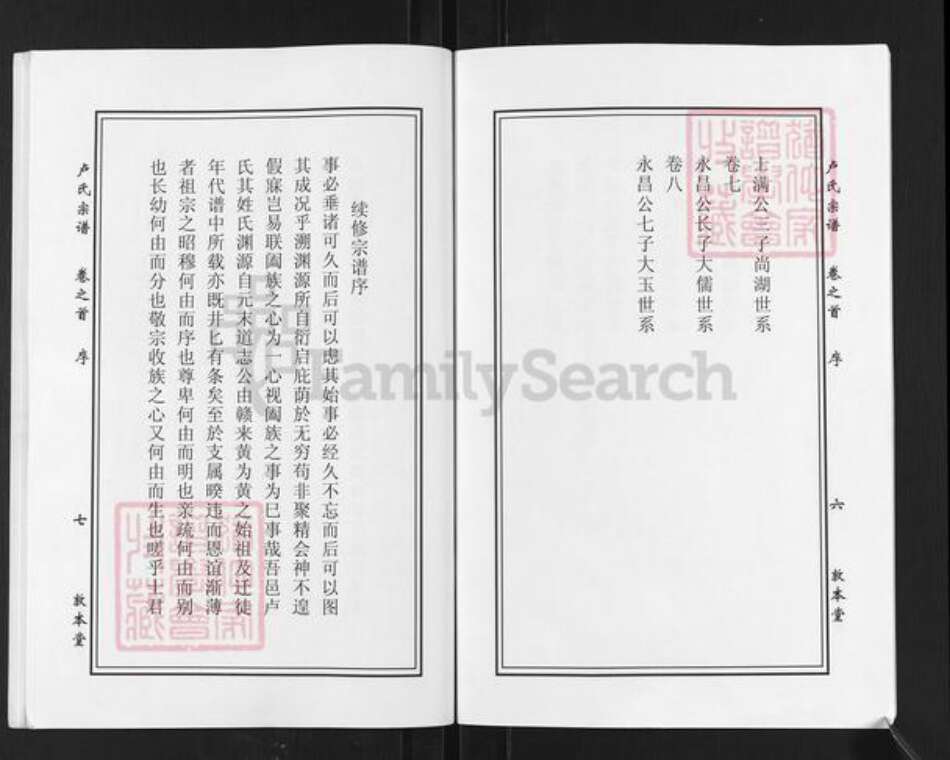 卢氏宗谱 卷之首 序 六 敦本堂
士满公三子尚湖世系
卷七
永昌公长子大儒世系
卷八
永昌公七子大玉世系
续修宗谱序
事必垂诸可久而后可以虑其始事必经久不忘而后可以图
其成况乎溯渊源所自衍启庇荫於无穷苟非聚精会神不遑
假寐岂易联阖族之心为一心视阖族之事为巳事哉吾邑卢
氏其姓氏渊源自元末道志公由赣来黄为黄之始祖及迁徒
年代谱中所载亦既井匕有条矣至於支属暌违而恩谊渐薄
者祖宗之昭穆何由而序也尊卑何由而明也亲疏何由而别
也长幼何由而分也敬宗收族之心又何由而生也嗟乎士君
卢氏宗谱 卷之首 序 七 敦本堂
FamilySearch